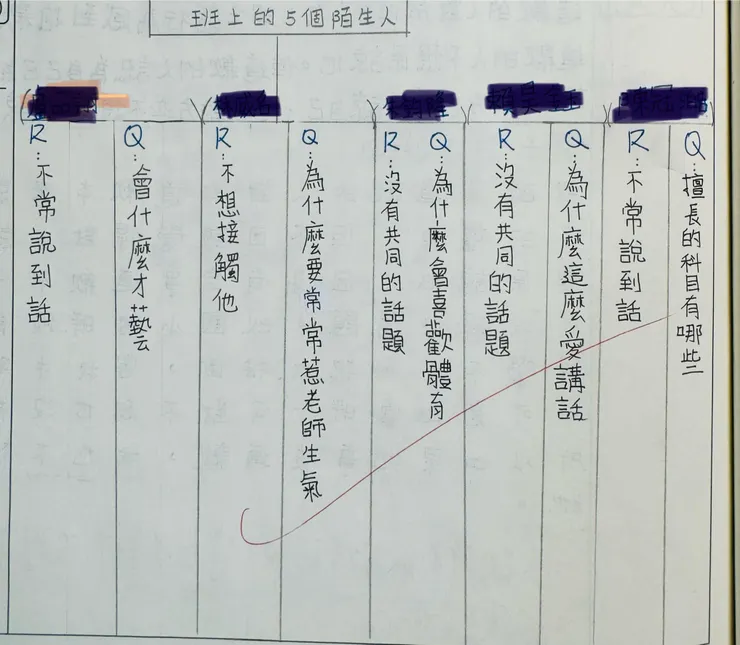 班上的5個陌生人
Q：擅長的科目有哪些
R：不常說到話
Q：為什麼這麼愛講話
R：沒有共同的話題
Q：為什麼會喜歡體育
R：沒有共同的話題
Q：為什麼要常常惹老師生氣
R：不想接觸他
Q：會什麼才藝
R：不常說到話